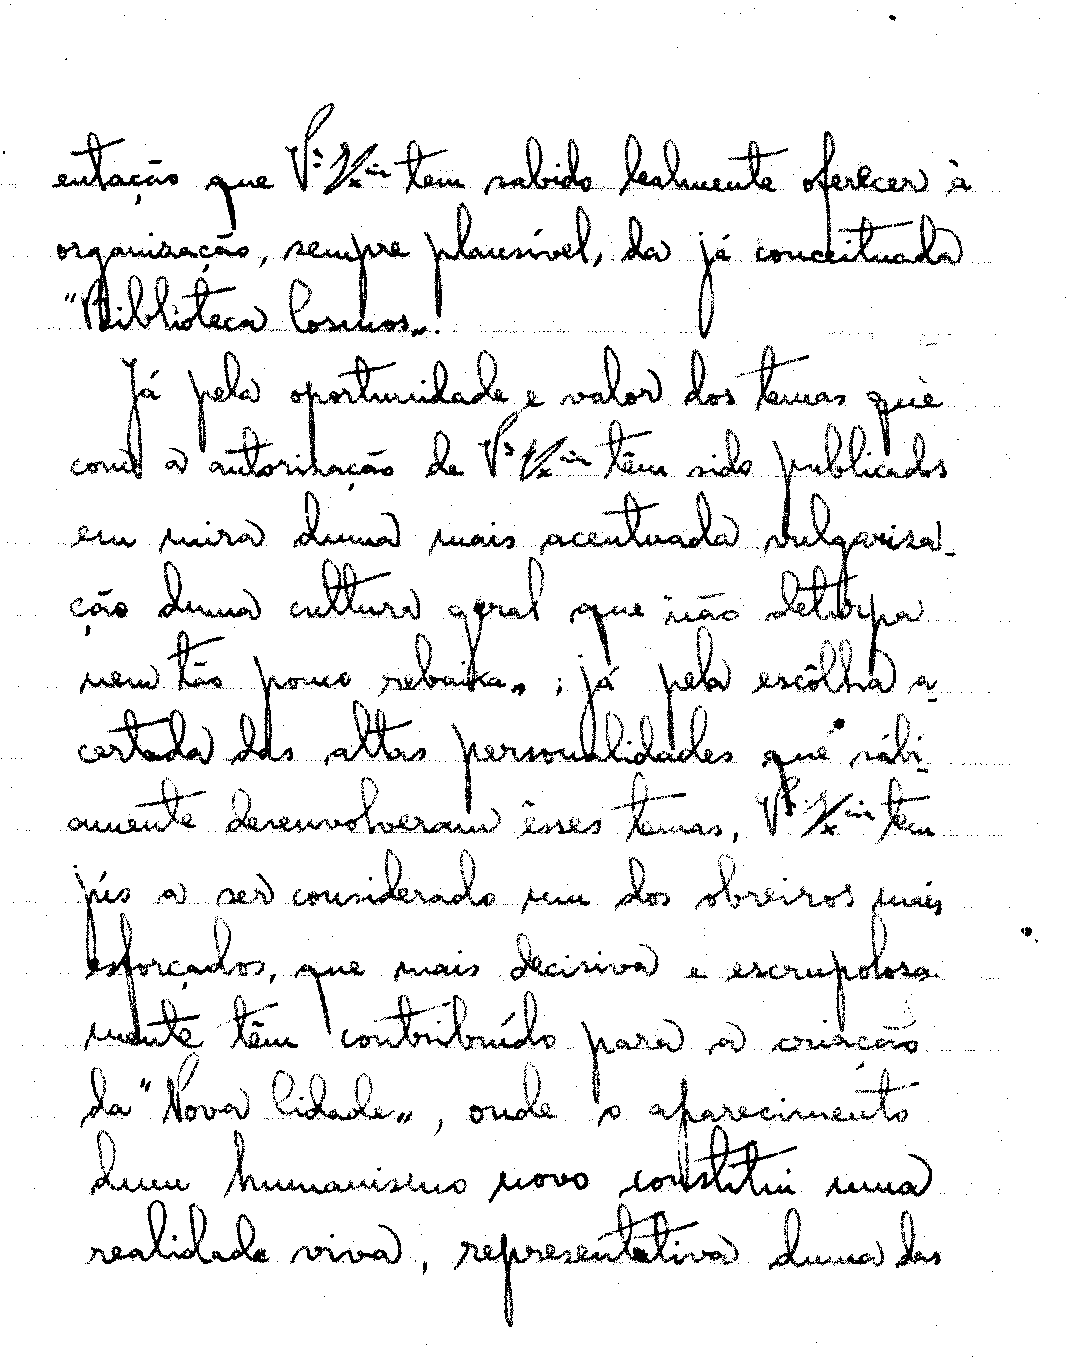 entação que V.ª Ex.cia tem sabido lealmente oferecer à
organização, sempre plausível, da já conceituada
"Biblioteca Cosmos".
Já pela oportunidade e valor dos temas que
com a autorização de V.ª Ex.cia têm sido publicados
em mira duma mais acentuada vulgariza-
ção duma cultura geral que não deturpa
nem tão pouco rebaixa, ; já pela escôlha a-
certada das altas personalidades que sàbi-
amente desenvolveram êsses temas, V.ª Ex.cia tem
jús a ser considerado um dos obreiros mais
esforçados, que mais decisiva e escrupolosa
mente têm contribuído para a criação
da "Nova Cidade", onde o aparecimento
dum humanismo novo constitui uma
realidade viva, representativa duma das